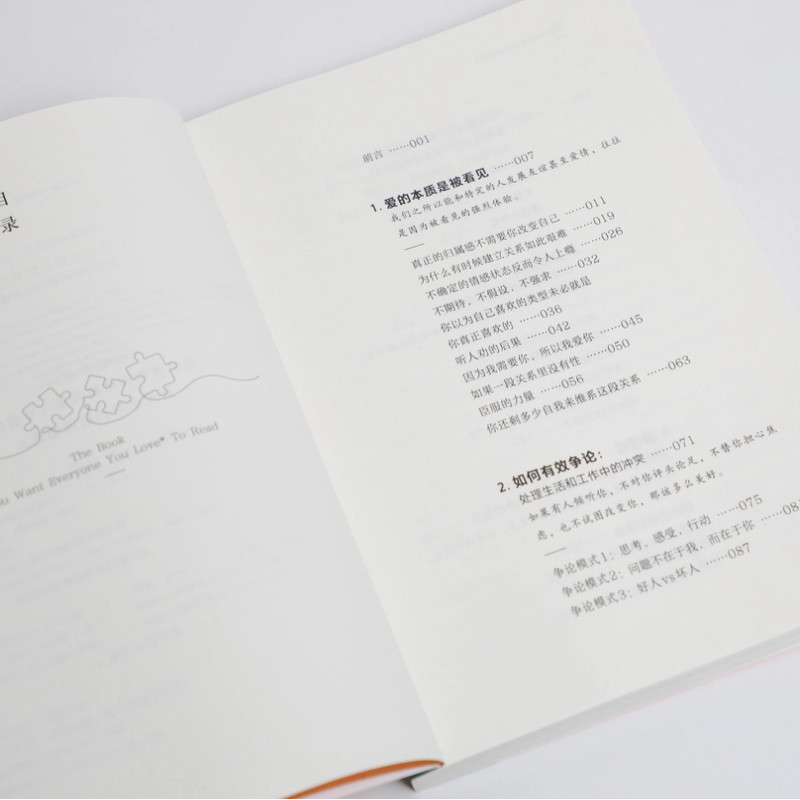 目
录
The Book
You Want Everyone You Love* To Read
前言 ……001
1. 爱的本质是被看见 ……007
我们之所以能和特定的人发展友谊甚至爱情，往往
是因为被看见的强烈体验。
真正的归属感不需要你改变自己 ……011
为什么有时候建立关系如此艰难 ……019
不确定的情感状态反而令人上瘾 ……026
不期待，不假设，不强求 ……032
你以为自己喜欢的类型未必就是
你真正喜欢的 ……036
听人劝的后果 ……042
因为我需要你，所以我爱你 ……045
如果一段关系里没有性 ……050
臣服的力量 ……056
你还剩多少自我来维系这段关系 ……063
2. 如何有效争论：
处理生活和工作中的冲突 ……071
如果有人倾听你，不对你评头论足，不替你担心焦
虑，也不试图改变你，那该多么美好。
争论模式1：思考，感受，行动 ……075
争论模式2：问题不在于我，而在于你 ……
争论模式3：好人vs坏人 ……087